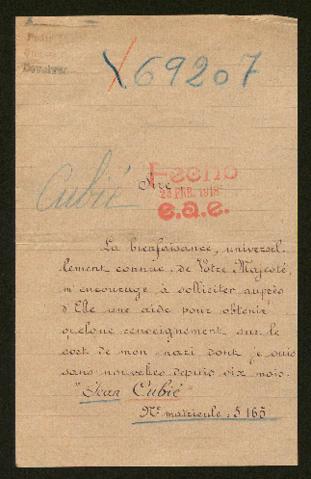 Devolver
X 69207
Cubié
Sire
Fecho
e.a.e.
La bienfaisance, universel-
lement connue, de Votre Majesté,
m'encourage à solliciter auprès
d'Elle une aide pour obtenir
quelque renseignement sur le
sort de mon mari dont je suis
sans nouvelles depuis six mois.
"Jean Cubié"
Nº matricule: 5165